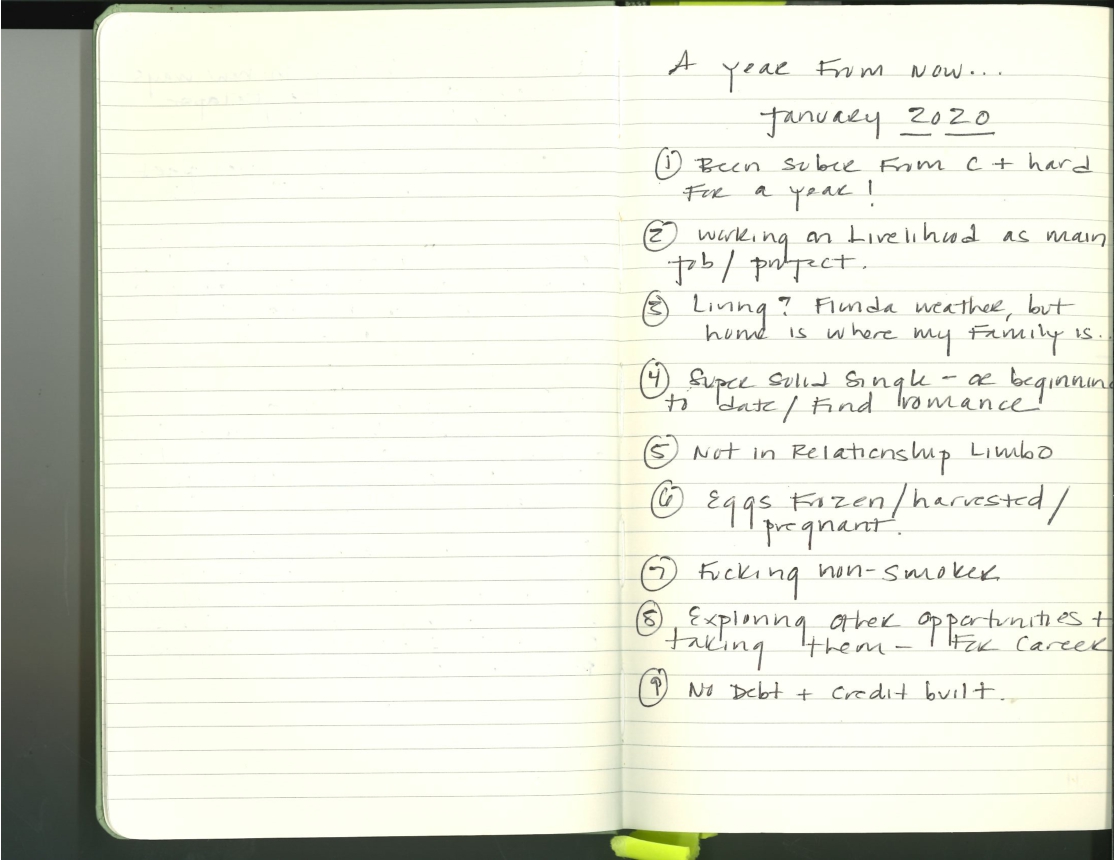 A year From Now...
January 2020
① Been sober From C + hard
For a year!
② Working on Livelihood as main
job/ project.
③ Living? Florida weather, but
home is where my Family is..
④ Super Solid Single - or beginning
to date/ Find romance
⑤ Not in Relationship Limbo
⑥ Eggs Frozen/harvested/
pregnant.
⑦ Fucking non-smoker
⑧ Exploring other opportunities +
taking them - For Career
⑨ No Debt + Credit built.